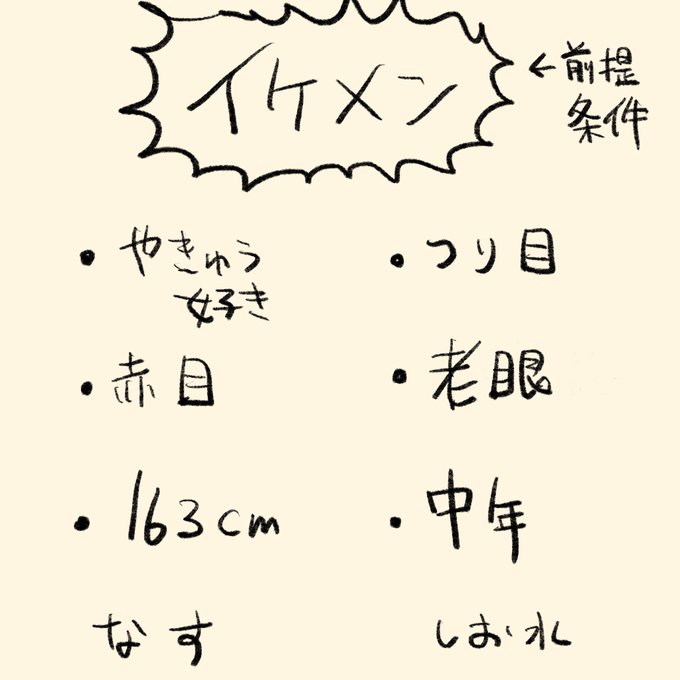 イケメン
←前提
条件
・やきゅう
好き
・つり目
・赤目
・老眼
・163cm
・中年
なす
しお水